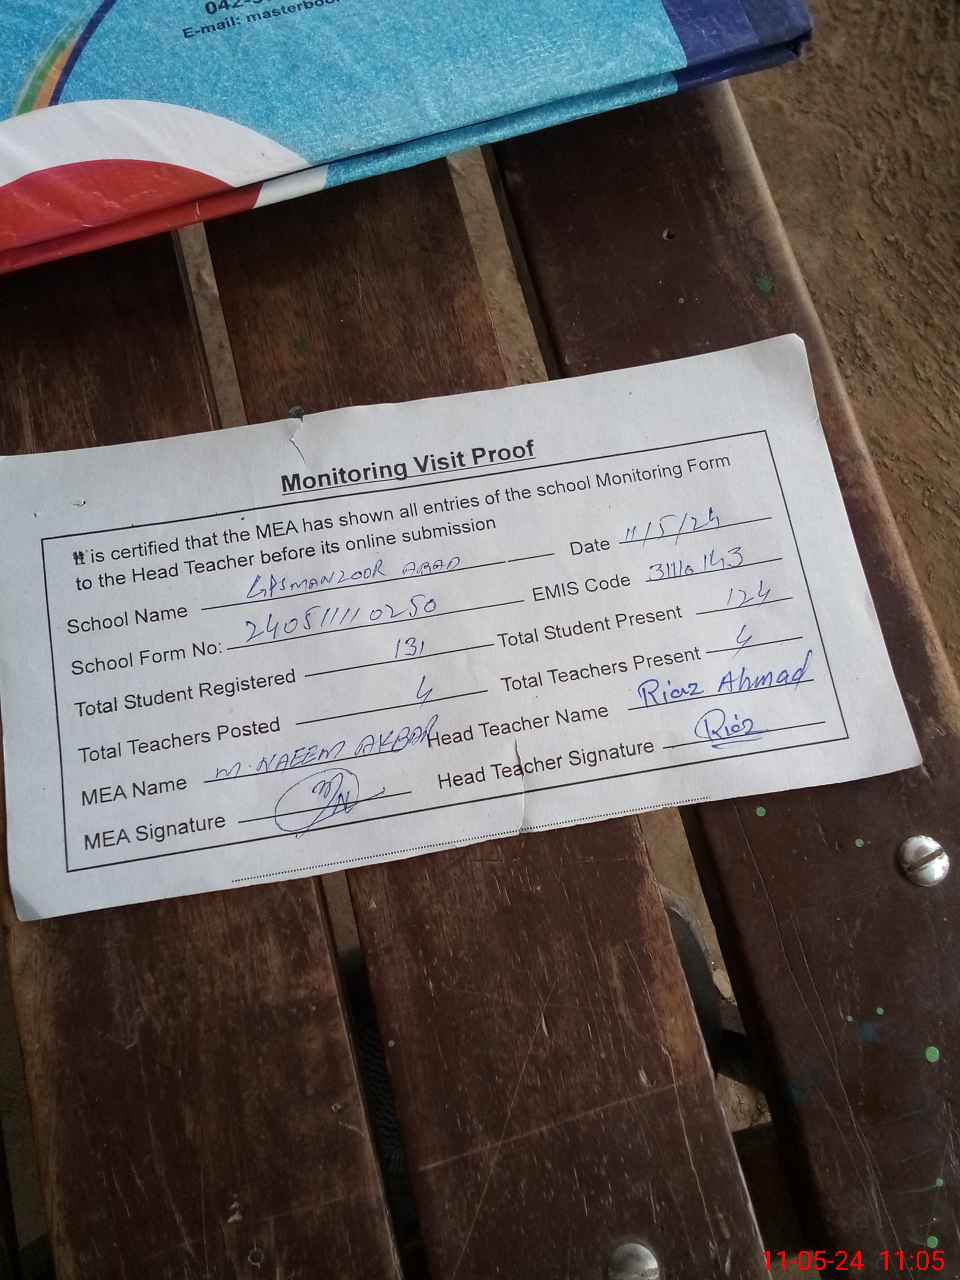 042-3
E-mail: masterboo
Monitoring Visit Proof
It is certified that the MEA has shown all entries of the school Monitoring Form
to the Head Teacher before its online submission
School Name GPS MANZOOR ABAD Date 11/5/24
School Form No: 24051111 0250 EMIS Code 31110143
Total Student Registered 131 Total Student Present 124
Total Teachers Posted 4 Total Teachers Present 4
MEA Name M. NAEEM AKBAR Head Teacher Name Riaz Ahmad
MEA Signature MN Head Teacher Signature Riaz
11-05-24 11:05